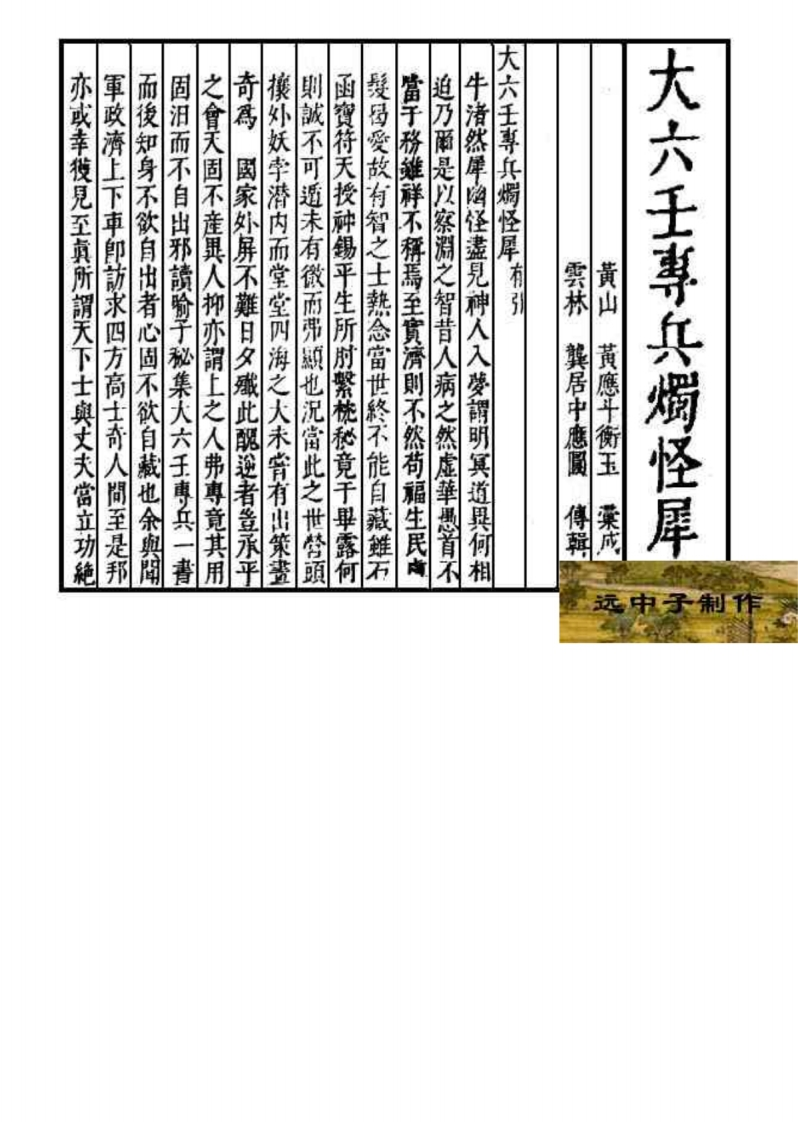 大六壬專兵燭怪犀
黃山　黃應斗衡玉　彙成
雲林　龔居中應圓　傳輯
大六壬專兵燭怪犀 有引
牛渚然犀幽怪盡見神人入夢謂明冥道異何相
迫乃爾是以察淵之智昔人病之然虛華愚首不
當于務雖祥不稱焉至實濟則不然苟福生民
髮曷愛故有智之士熱念當世終不能自藏雖石
函寶符天授神錫平生所肘繫枕秘竟于畢露何
則誠不可遁未有微而弗顯也況當此之世勞頭
攘外妖孛潛內而堂堂四海之大未嘗有出策畫
奇為　國家外屏不難日夕殲此醜逆者豈承平
之會天固不産異人抑亦謂上之人弗專竟其用
固汨而不自出邪讀喻子秘集大六壬專兵一書
而後知身不欲自出者心固不欲自藏也余與聞
軍政濟上下車卽訪求四方高士奇人間至是邦
亦或幸獲見至眞所謂天下士與丈夫當立功絶
远中子制作